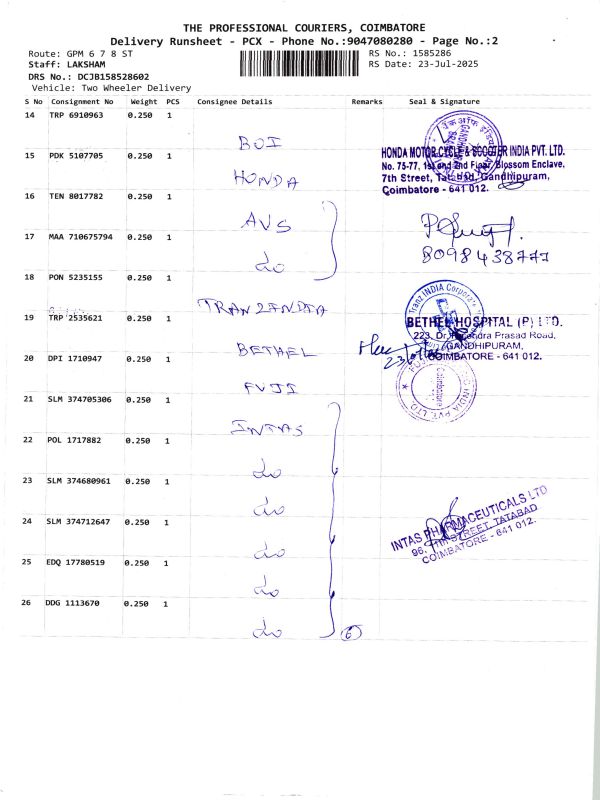 THE PROFESSIONAL COURIERS, COIMBATORE
Delivery Runsheet - PCX - Phone No.:9047080280 - Page No.:2
Route: GPM 6 7 8 ST
RS No.: 1585286
Staff: LAKSHAM
RS Date: 23-Jul-2025
DRS No.: DCJB158528602
Vehicle: Two Wheeler Delivery
S No Consignment No Weight PCS Consignee Details Remarks Seal & Signature
14 TRP 6910963 0.250 1
BOI
15 PDK 5107705 0.250 1
HONDA
HONDA MOTORCYCLE & SCOOTER INDIA PVT. LTD.
No. 75-77, 1st and 2nd Floor, Blossom Enclave,
7th Street, Tatabad, Gandhipuram,
Coimbatore - 641 012.
16 TEN 8017782 0.250 1
AVS
17 MAA 710675794 0.250 1
do
8098438777
18 PON 5235155 0.250 1
TRANZINDIA
Tranz INDIA Corporate
19 TRP 2535621 0.250 1
BETHEL
BETHEL HOSPITAL (P) LTD.
223, Dr. Rajendra Prasad Road,
GANDHIPURAM,
COIMBATORE - 641 012.
20 DPI 1710947 0.250 1
FUJI
INDIA PVT. LTD.
Coimbatore
21 SLM 374705306 0.250 1
INTAS
22 POL 1717882 0.250 1
do
23 SLM 374680961 0.250 1
do
24 SLM 374712647 0.250 1
do
INTAS PHARMACEUTICALS LTD
96, 11th STREET, TATABAD
COIMBATORE - 641 012.
25 EDQ 17780519 0.250 1
do
26 DDG 1113670 0.250 1
do
6